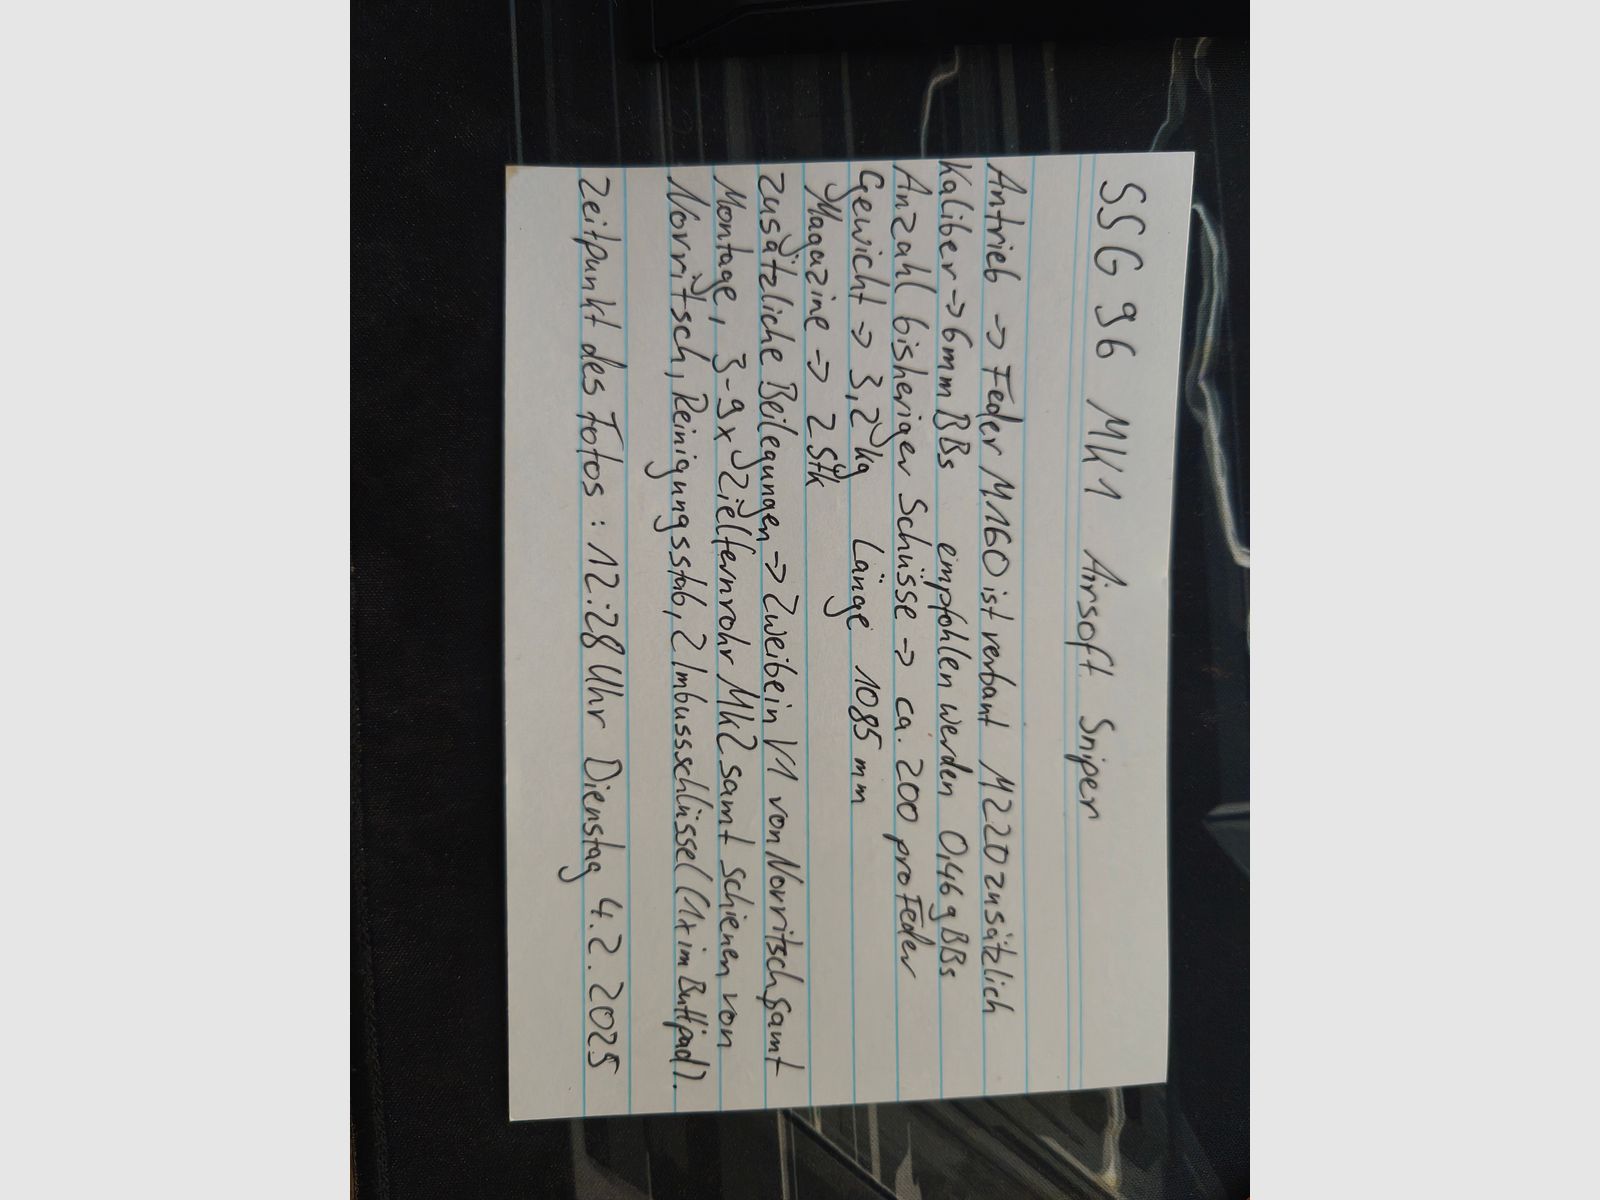 SSG 96 MK1 Airsoft Sniper
Antrieb -> Feder M160 ist verbaut M220 zusätzlich
Kaliber -> 6mm BBs empfohlen werden 0,46g BBs
Anzahl bisheriger Schüsse -> ca. 200 pro Feder
Gewicht -> 3,2 kg Länge 1085 mm
Magazine -> 2 Stk
Zusätzliche Beilegungen -> Zweibein V1 von Novritsch samt
Montage, 3-9x Zielfernrohr Mk2 samt schienen von
Novritsch, Reinigungsstab, 2 Imbussschlüssel (1x im Buttpad).
Zeitpunkt des Fotos : 12:28 Uhr Dienstag 4.2.2025